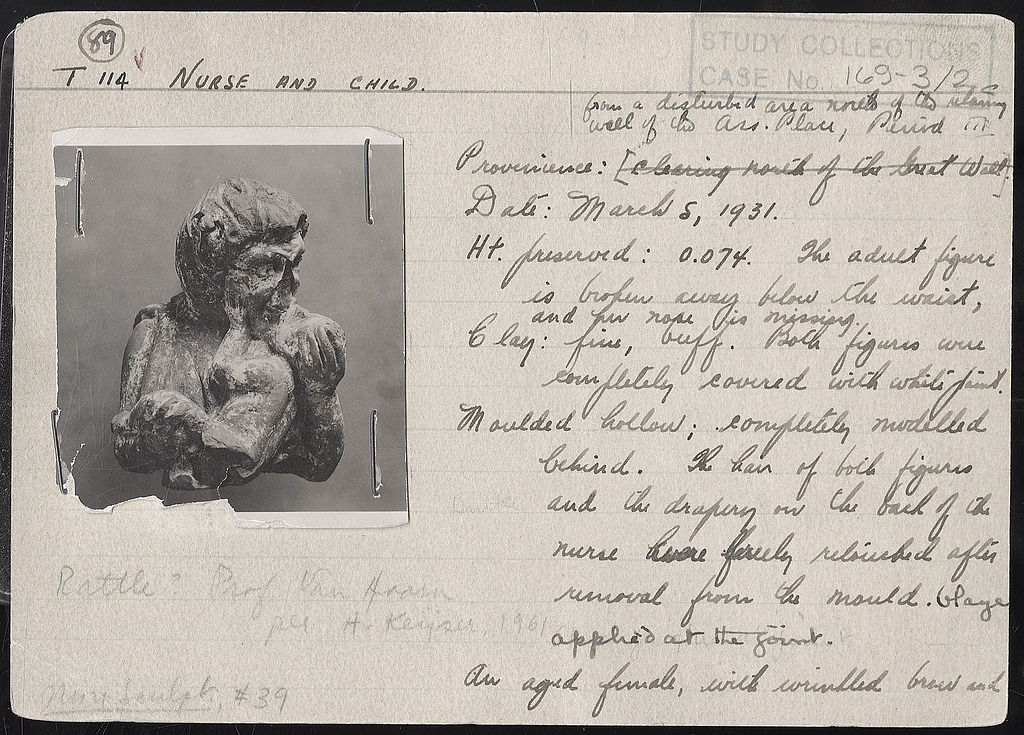 89
T 114 NURSE AND CHILD.
STUDY COLLECTIONS
CASE No. 169-3/2
from a disturbed area north of the retaining
wall of the Ass. Place, Period III
Provenience: [clearing north of the Great Wall].
Date: March 5, 1931.
Ht. preserved: 0.074. The adult figure
is broken away below the waist,
and her nose is missing.
Clay: fine, buff. Both figures were
completely covered with white paint.
Moulded hollow; completely modelled
behind. The hair of both figures
and the drapery on the back of the
nurse were freely retouched after
removal from the mould. Glaze
applied at the joint.
An aged female, with wrinkled brow and
Rattle? Prof Van Hoorn
per H. Keyser, 1961
Sculpt, #39